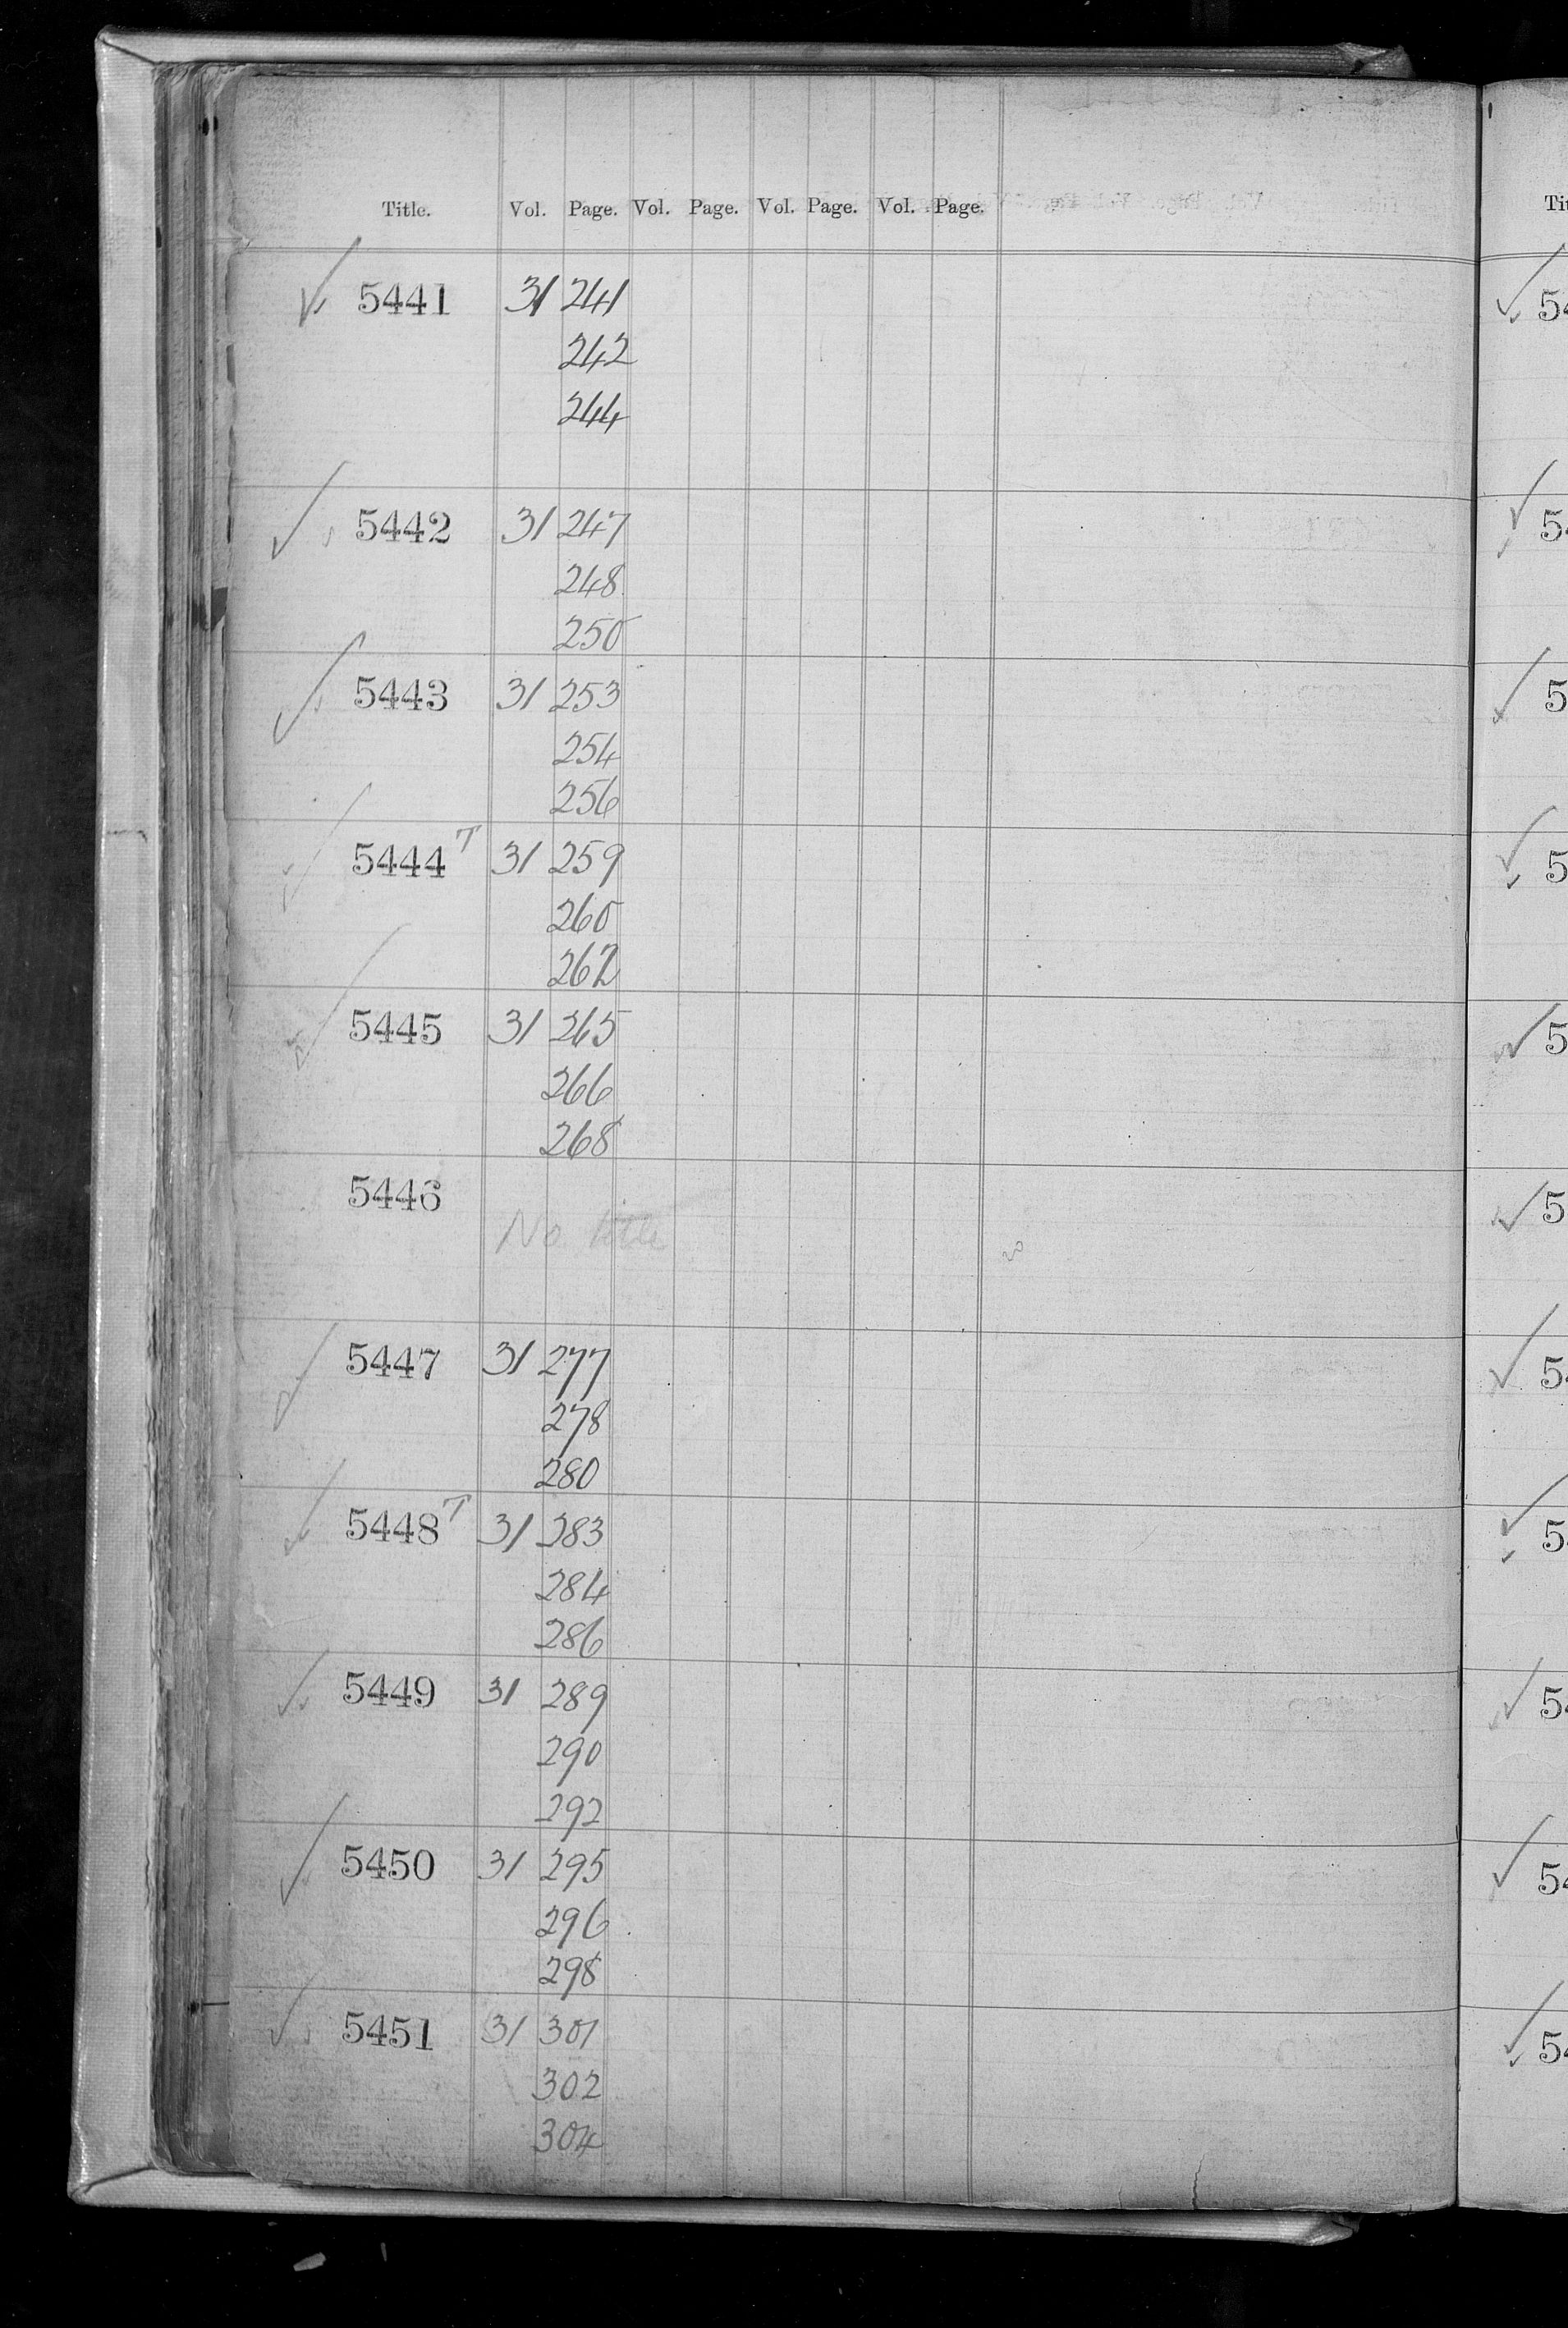 Title. Vol. Page. Vol. Page. Vol. Page. Vol. Page.
✓ 5441 31 241
242
244
✓ 5442 31 247
248
250
✓ 5443 31 253
254
256
✓ 5444 T 31 259
260
262
✓ 5445 31 265
266
268
5446
No title
✓ 5447 31 277
278
280
✓ 5448 T 31 283
284
286
✓ 5449 31 289
290
292
✓ 5450 31 295
296
298
✓ 5451 31 301
302
304